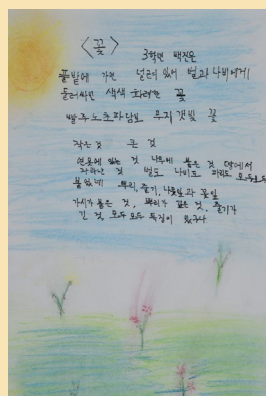 <꽃>
3학년 백진은
풀밭에 가면 널려 있어 벌과 나비에게
둘러싸인 색색 화려한 꽃
빨주노초파남보 무지갯빛 꽃
작은 것 큰 것
연못에 있는 것 나무에 붙은 것 땅에서
자라난 것 벌도 나비도 파리도 모두모두
붙었네 뿌리, 줄기, 나뭇잎과 꽃잎
가시가 붙은 것, 뿌리가 깊은 것, 줄기가
긴 것, 모두 모두 특징이 있구나